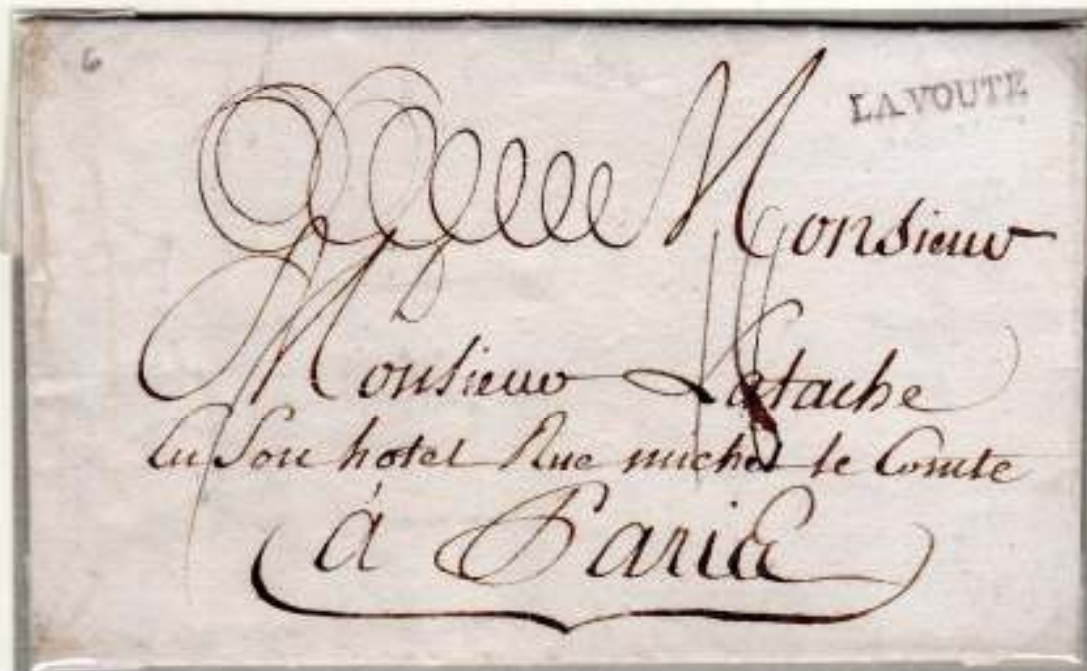 6
LAVOUTE
Monsieur
Monsieur Latache
En son hotel Rue michel le Comte
à Paris